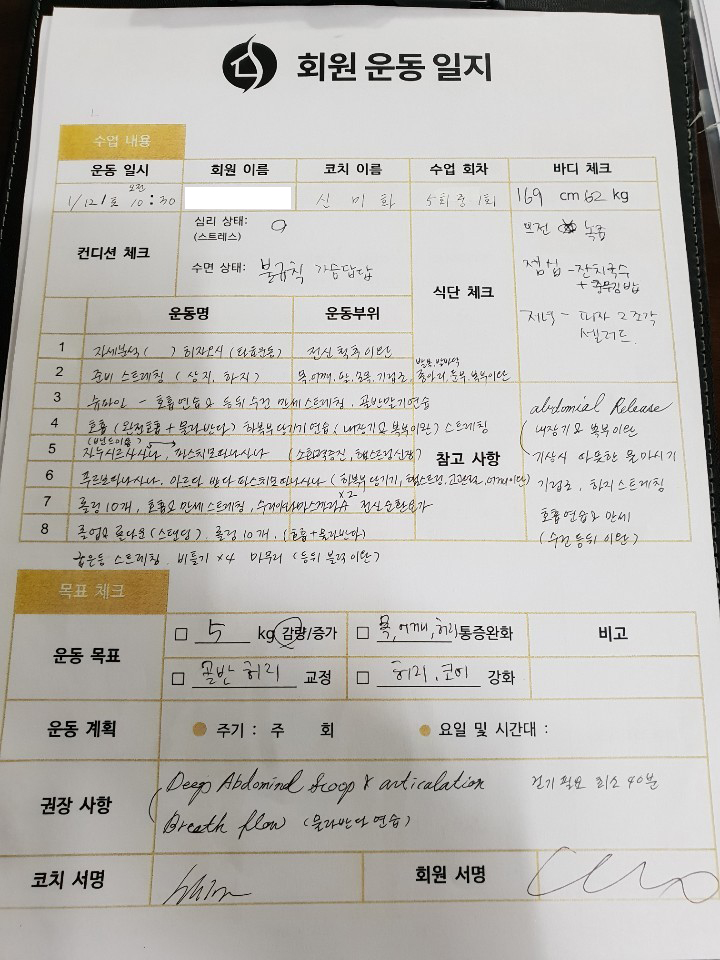 회원 운동 일지
수업 내용
운동 일시 회원 이름 코치 이름 수업 회차 바디 체크
1/12/토 오전 10:30 신 미 화 5회중 1회 169 cm 62 kg
컨디션 체크
심리 상태:
(스트레스)
수면 상태: 불규칙 가슴답답
식단 체크
오전 녹즙
점심 - 잔치국수
+ 충무김밥
저녁 - 피자 2조각
샐러드
운동명 운동부위
1 자세분석 ( ) 히자오사 (타효운동) 전신 척추이완
2 준비 스트레칭 (상지, 하지) 목, 어깨, 팔, 손목, 기립근, 종아리, 둔부, 복부이완
3 - 호흡연습 & 등뒤 수건 만세 스트레칭, 골반말기연습
4 호흡 (완전호흡 + 물라반다) 하복부당기기연습 (내장기&복부이완) 스트레칭
5 자누시르사사나, 파스치모타나사나 (소화력증진, 햄스트링신장)
6 하복부당기기, 햄스트링, 고관절, 어깨이완)
7 롤링 10개, 호흡&만세스트레칭, 수리야나마스카라A x2 전신순환요가
8 롤다운 (스탠딩), 롤링 10개, (호흡+물라반다)
스트레칭, 비틀기 x4 마무리 (등위 블럭 이완)
참고 사항
abdomial Release
내장기&복부이완
기상시 따뜻한 물 마시기
기립근, 하지스트레칭
호흡연습&만세
(수건 등뒤 이완)
목표 체크
운동 목표
5 kg 감량/증가
목, 어깨, 허리 통증완화
비고
골반 허리 교정
허리, 코어 강화
운동 계획 주기 : 주 회 요일 및 시간대 :
권장 사항
Deep Abdominal Scoop & articulation 걷기 필요 최소 40분
Breath flow (물라반다 연습)
코치 서명 회원 서명